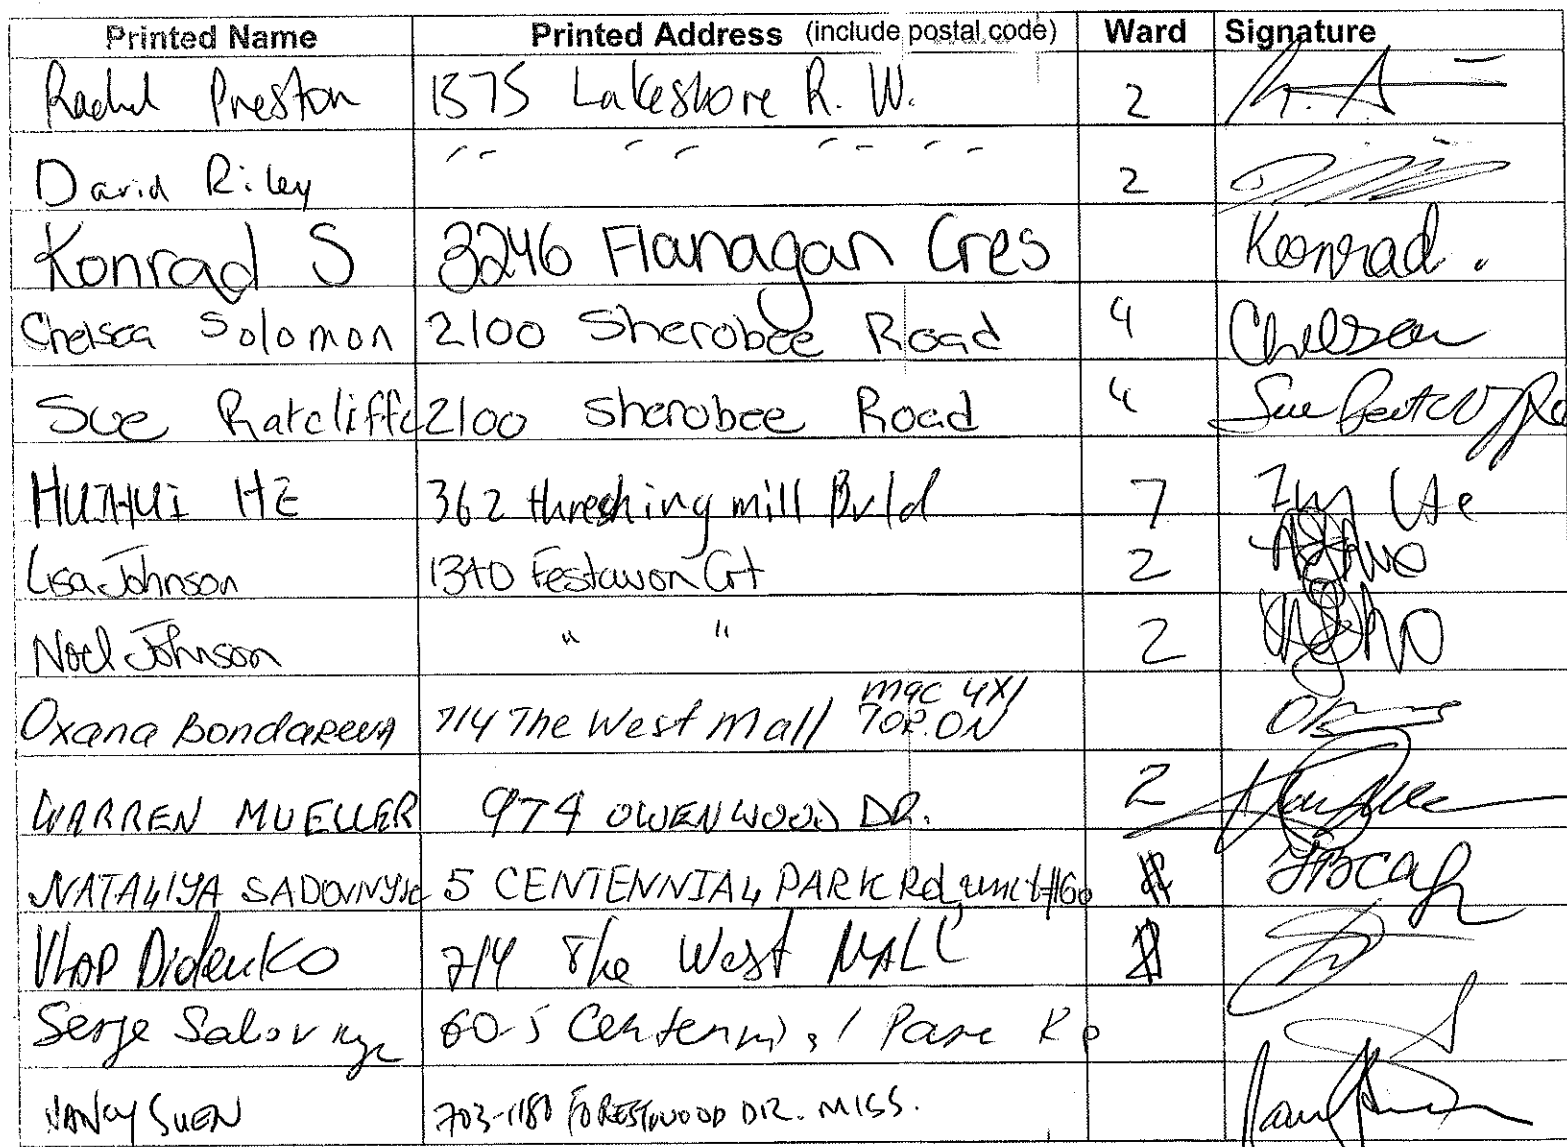 Printed Name Printed Address (include postal code) Ward Signature
Rachel Preston 1375 Lakeshore R. W. 2
David Riley " " " " 2
Konrad S 3246 Flanagan Cres Konrad.
Chelsea Solomon 2100 Sherobee Road 4 Chelsea
Sue Ratcliffe 2100 Sherobee Road 4 Sue Ratcliffe
HUIHUI HE 362 threshing mill Bvld 7
Lisa Johnson 1340 Festavon Crt 2
Noel Johnson " " 2
Oxana Bondareva 714 The West Mall M9C 4X1 TOR.ON
WARREN MUELLER 974 OWENWOOD DR. 2
NATALIYA 5 CENTENNIAL PARK Rd, unit #60
VLAD Didenko 714 The West MALL
Serge 60-5 Centennial Park RD
NANCY SUEN 703-1180 FORESTWOOD DR. MISS.